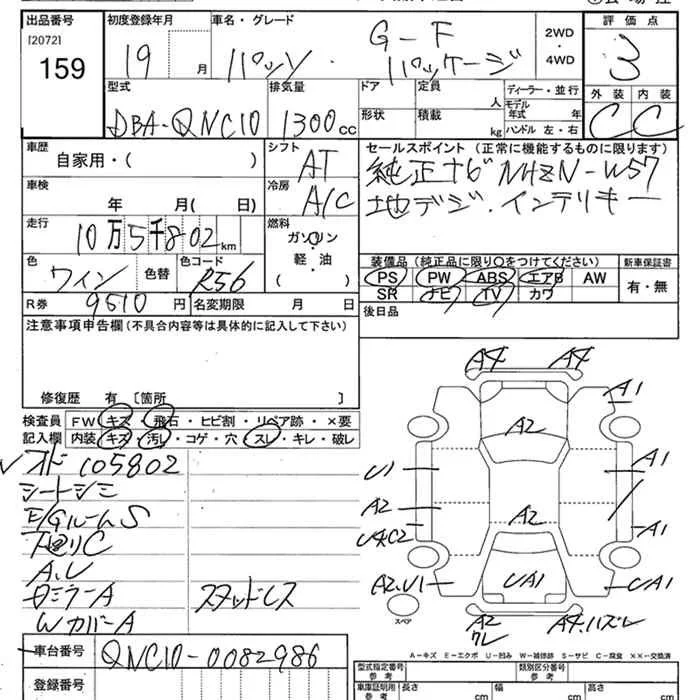 出品番号 初度登録年月 車名・グレード 評価点
[2072] 159 19 月 パッソ G-F パッケージ 2WD・4WD 3
型式 排気量 ドア 定員 ディーラー・並行 外装 内装
DBA-QNC10 1300cc 人 モデル年式 年 C C
形状 積載 kg ハンドル 左・右
車歴 シフト セールスポイント (正常に機能するものに限ります)
自家用・( ) AT 純正ナビ NHZN-W57
車検 冷房 地デジ.インテリキー
年 月( 日) A/C
走行 燃料
10万5千802km ガソリン・軽・油 ( )
装備品(純正品に限り○をつけてください) 新車保証書
色 ワイン 色替 色コード R56 PS PW ABS エアB AW 有・無
SR ナビ TV カワ
R券 9510円 名変期限 月 日 後日品
注意事項申告欄(不具合内容等は具体的に記入して下さい)
修復歴 有 [箇所 ]
検査員 FW キズ・飛石・ヒビ割・リペア跡・×要
記入欄 内装 キズ・汚し・コゲ・穴・スレ・キレ・破レ
オド 105802
シートシミ
E/GルームS
下廻りC
A.U
ミラーA スタッドレス
WカバーA
車台番号 QNC10-0082986
登録番号
A4 A4
A1
A2
U1 A1
A2 A2
A1
A2.U1 UA1 UA1
スペア
A2 A4.ハズレ
A-キズ E-エクボ U-凹み W-補修跡 S-サビ C-腐食 ××-交換済
型式指定番号 類別区分番号
車庫証明用 参考 長さ cm 幅 cm 高さ cm